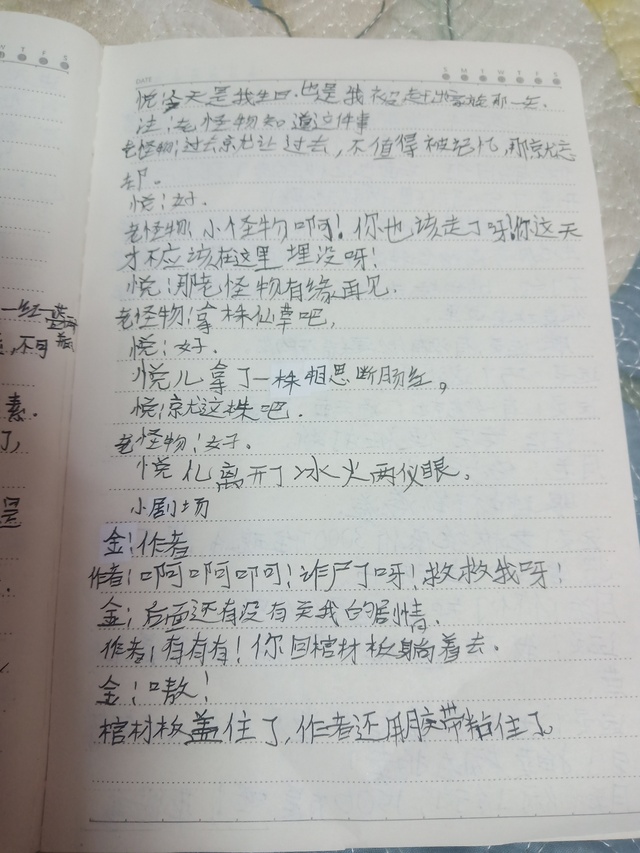 DATE
S M T W T F S
悦:今天是我生日.也是我被赶出家族那一天.
注:老怪物知道这件事
老怪物:过去就让过去,不值得被记忆,那就忘
却。
悦:好.
老怪物:小怪物啊!你也该走了呀!你这天
才不应该在这里埋没呀!
悦:那老怪物有缘再见.
老怪物:拿株仙草吧,
悦:好.
悦儿拿了一株相思断肠红。
悦:就这株吧.
老怪物:好.
悦儿离开了冰火两仪眼。
小剧场
金:作者
作者:啊啊啊!诈尸了呀!救救我呀!
金:后面还有没有关我的剧情.
作者:有有有!你回棺材板躺着去.
金:嗷!
棺材板盖住了,作者还用胶带粘住了。
一红
,不同
素.
了,